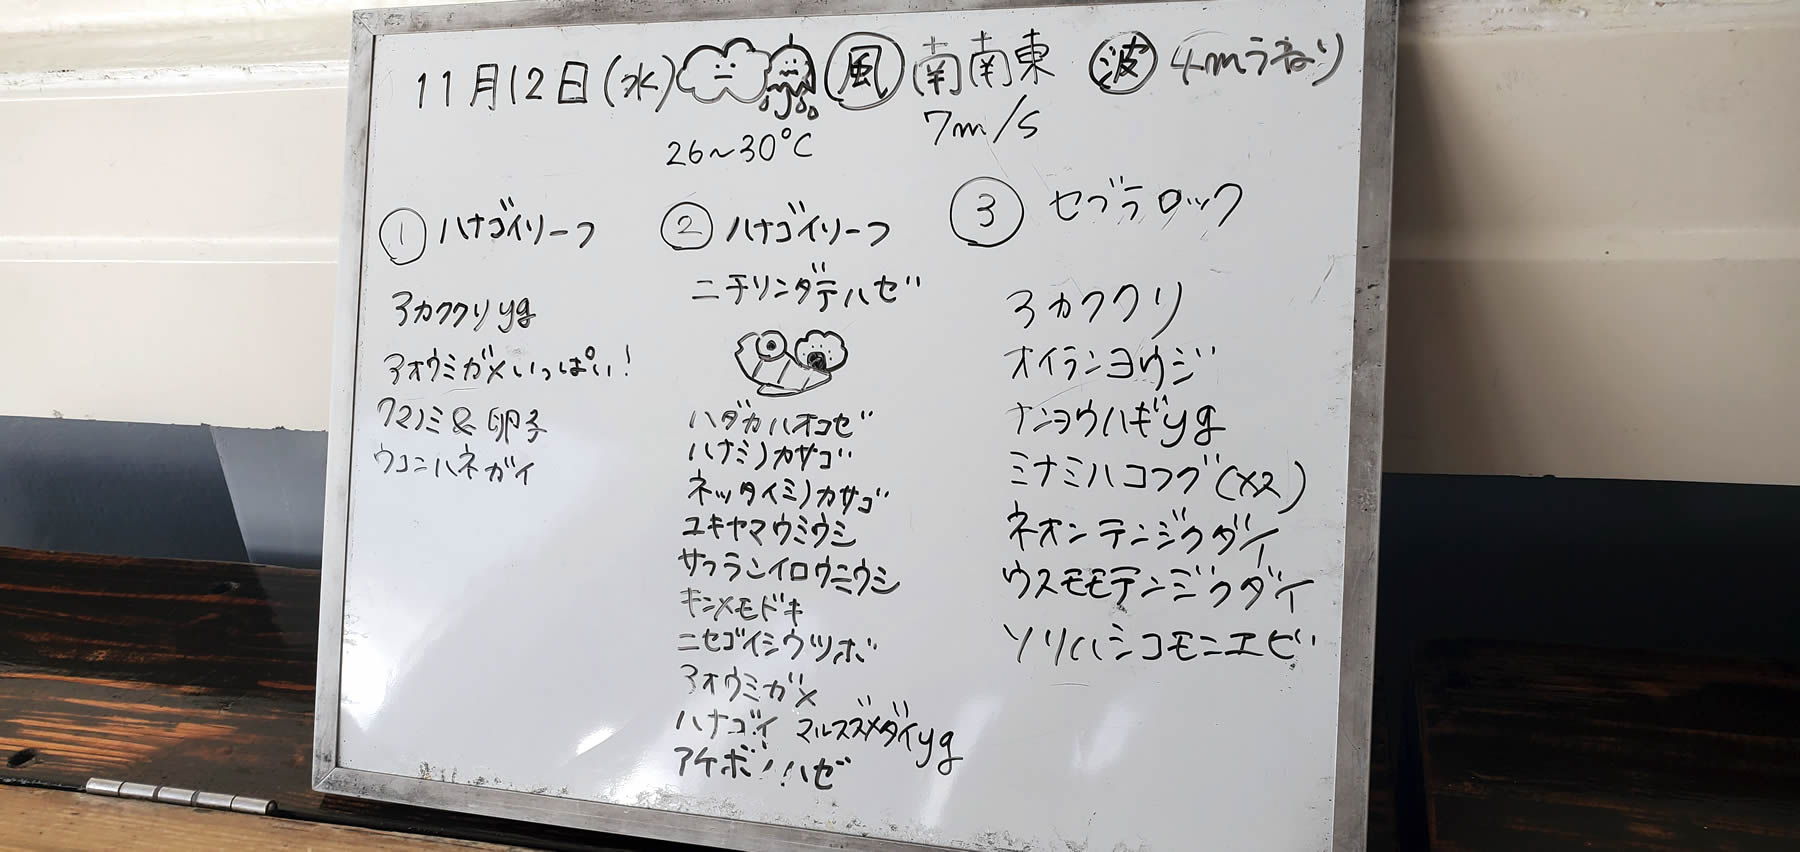 11月12日(水) 風 南南東 波 4mうねり
26~30℃ 7m/s
① ハナゴイリーフ
アカククリyg
アオウミガメいっぱい!
クマノミ&卵子
ウコンハネガイ
② ハナゴイリーフ
ニチリンダテハゼ
ハダカハオコゼ
ハナミノカサゴ
ネッタイミノカサゴ
ユキヤマウミウシ
サフランイロウミウシ
キンメモドキ
ニセゴイシウツボ
アオウミガメ
ハナゴイ マルスズメダイyg
アケボノハゼ
③ セブラロック
アカククリ
オイランヨウジ
ナンヨウハギyg
ミナミハコフグ(メス)
ネオンテンジクダイ
ウスモモテンジクダイ
ソリハシコモンエビ